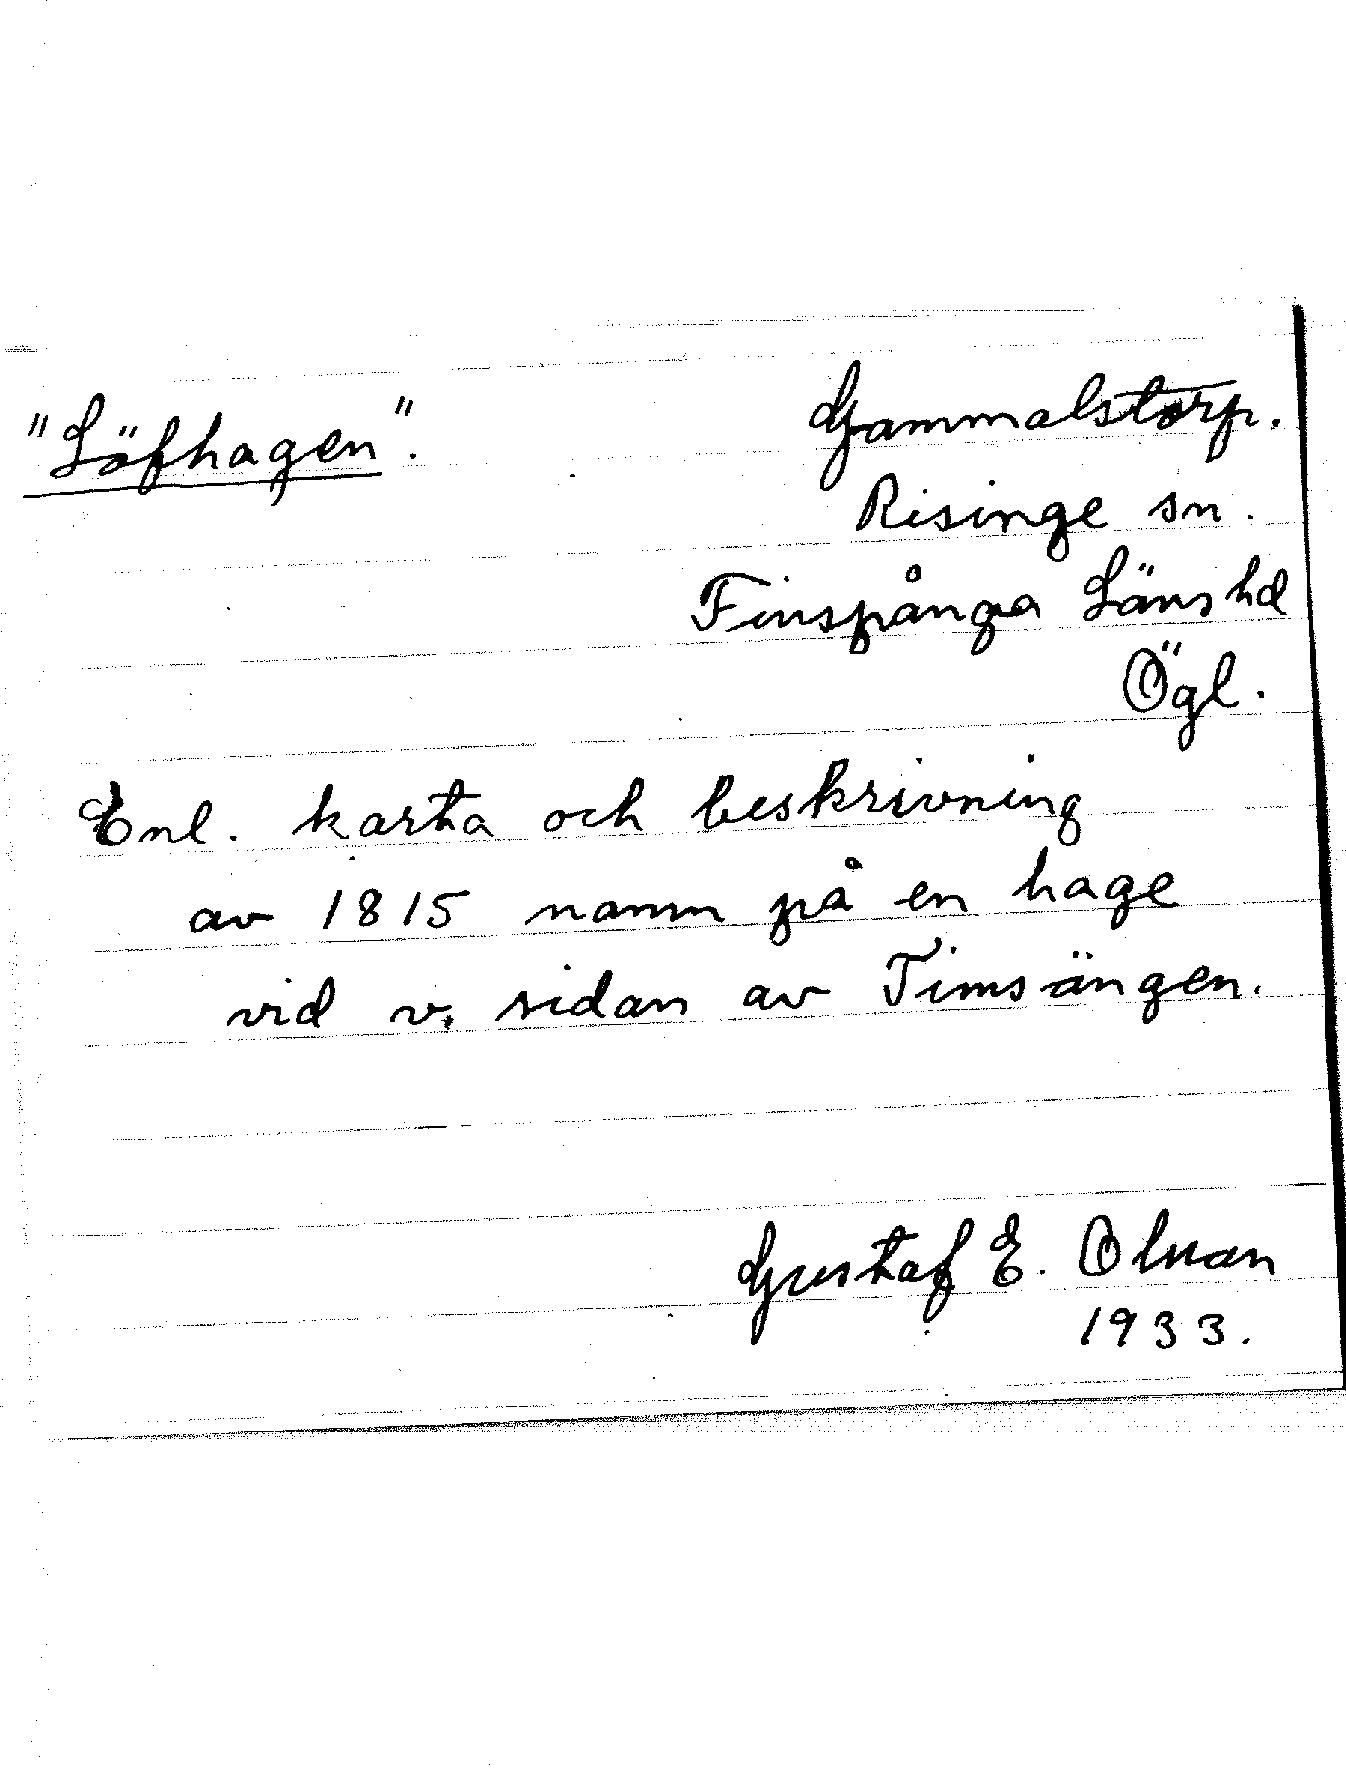 "Löfhagen".
Gammalstorp.
Risinge sn.
Finspånga Läns hd
Ögl.
Enl. karta och beskrivning
av 1815 namn på en hage
vid v. sidan av Timsängen.
Gustaf E. Olsson
1933.